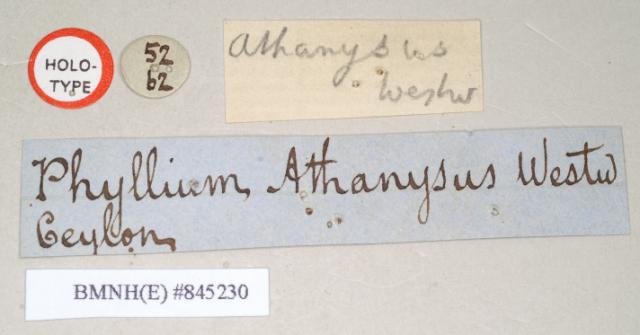 HOLO-
TYPE
52
62
Athanysus
Westw
Phyllium, Athanysus Westw
Ceylon,
BMNH(E) #845230